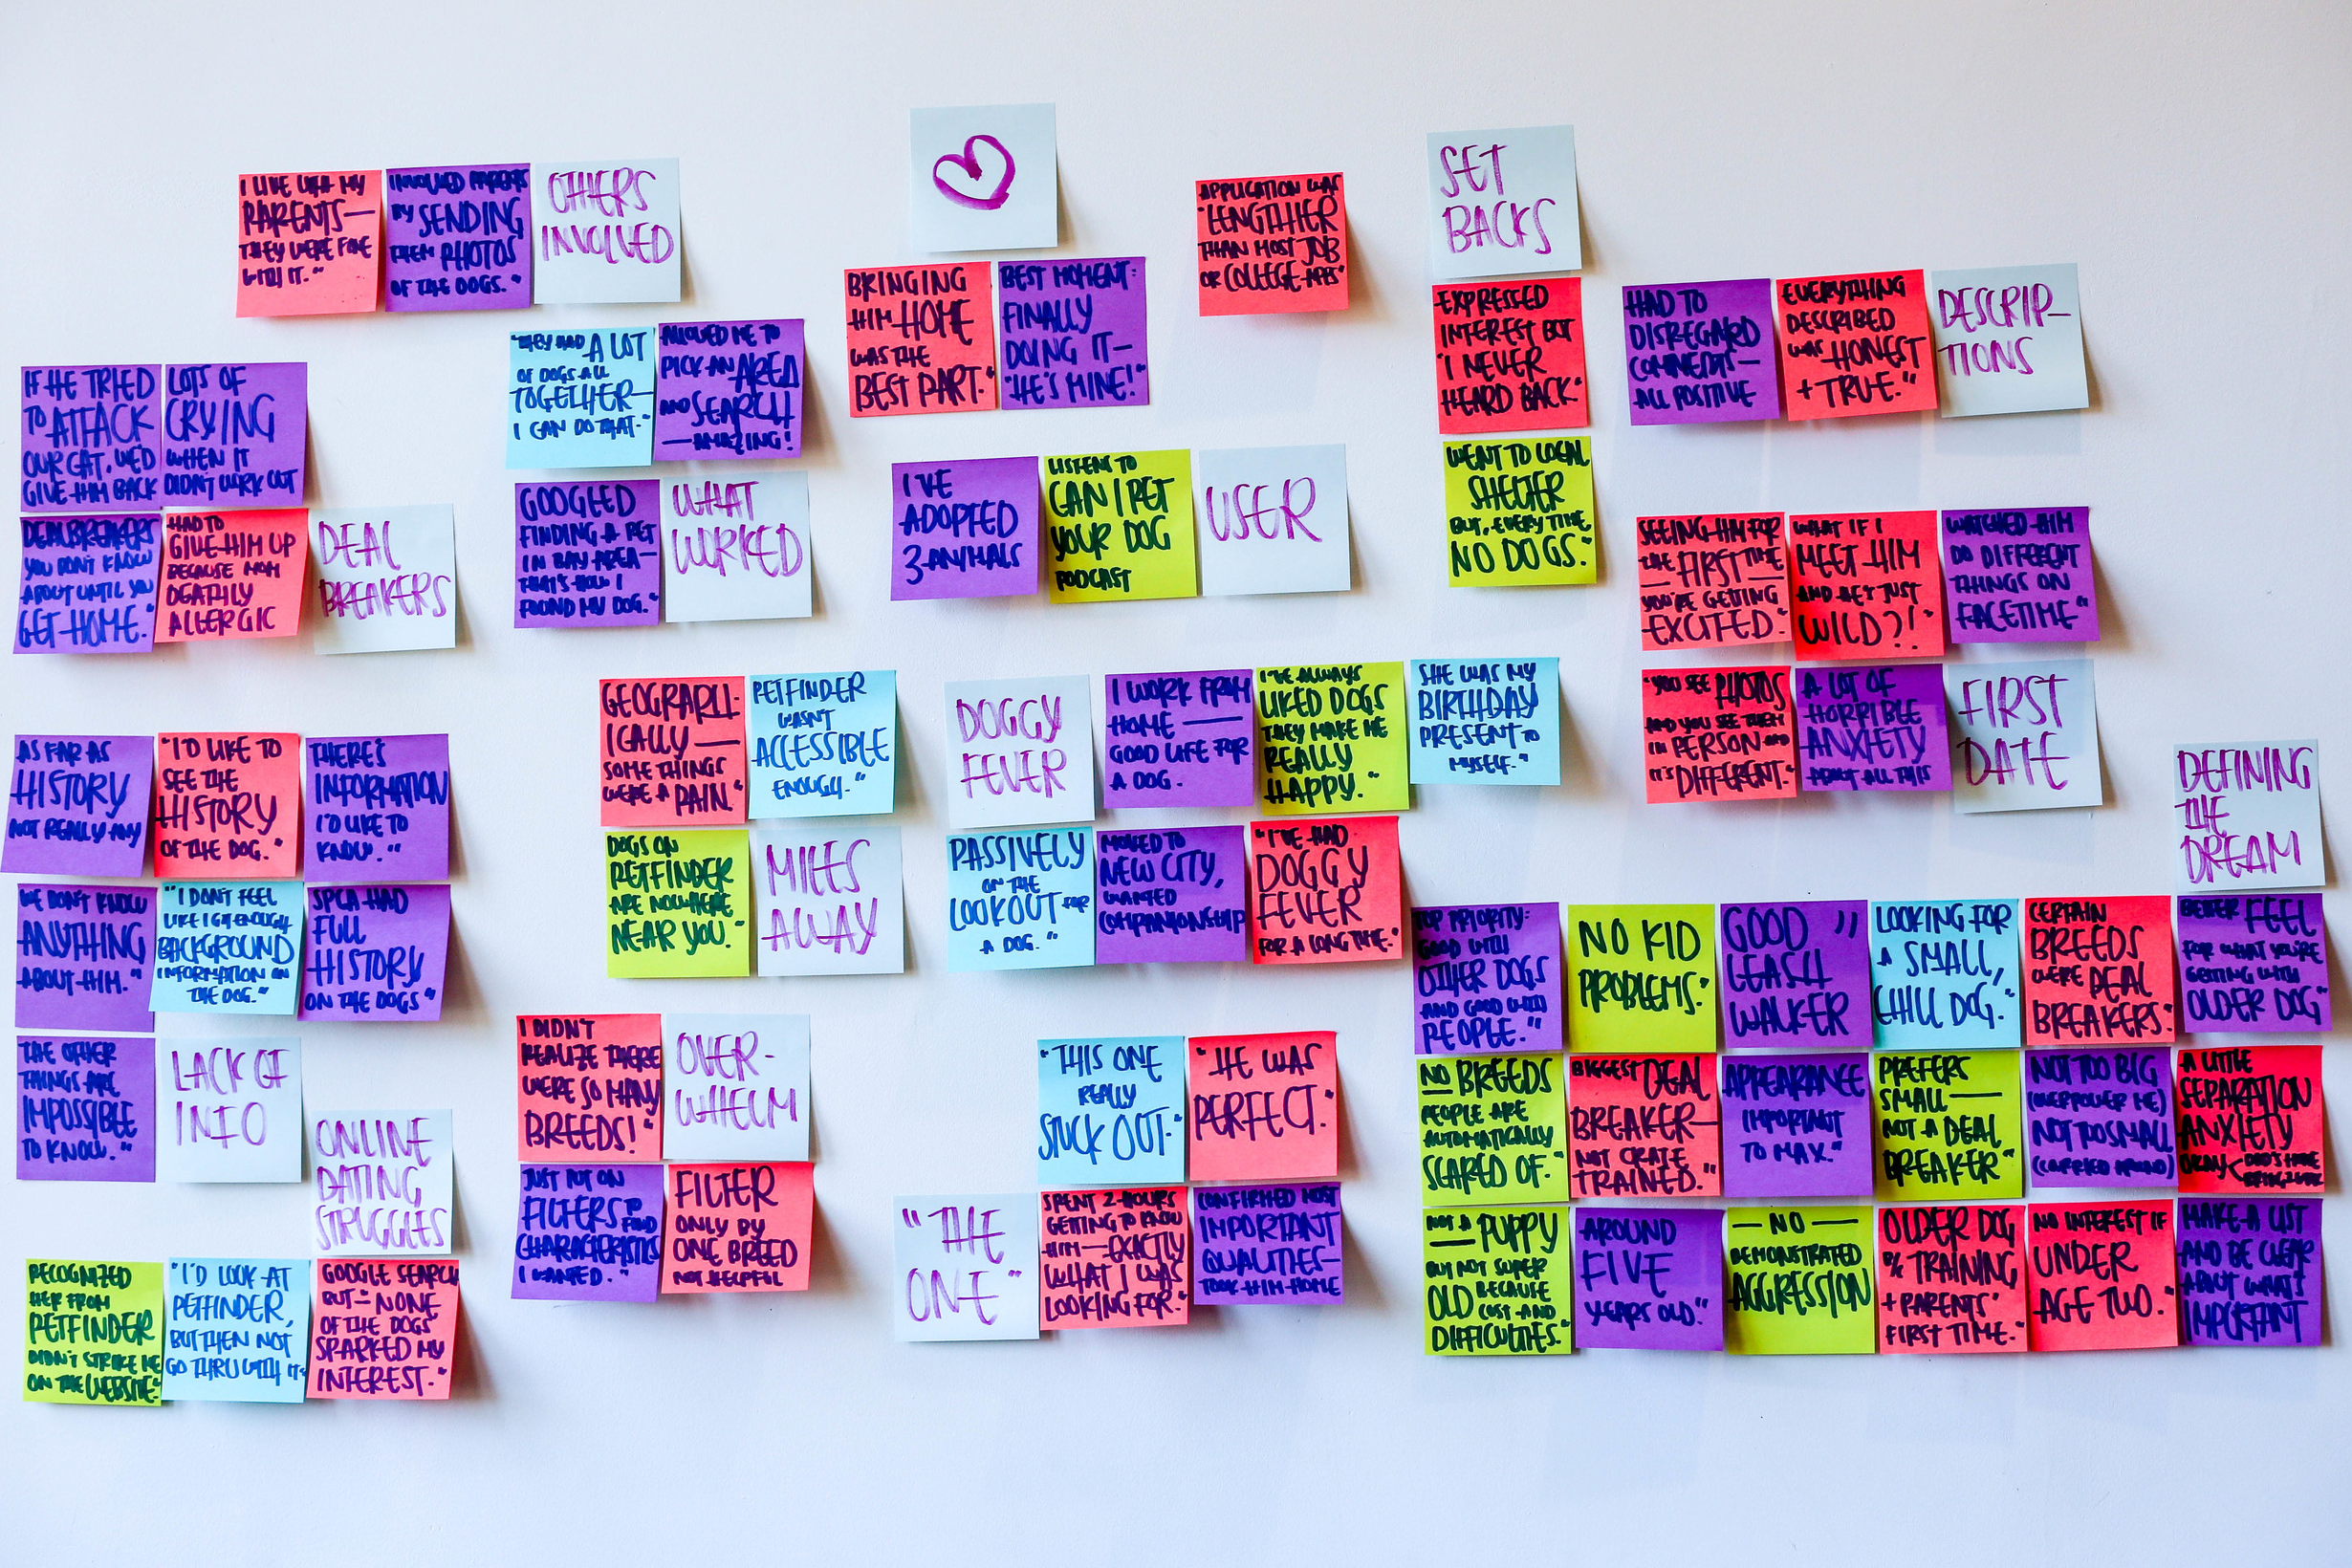 I LIVE WITH MY
PARENTS—
THEY WERE FINE
WITH IT."
INVOLVED PARENTS
BY SENDING
THEM PHOTOS
OF THE DOGS."
OTHERS
INVOLVED
APPLICATION WAS
"LENGTHIER
THAN MOST JOB
OR COLLEGE-APPS"
SET
BACKS
BRINGING
HIM HOME
WAS THE
BEST PART."
BEST MOMENT:
FINALLY
DOING IT—
"HE'S MINE!"
EXPRESSED
INTEREST BUT
"I NEVER
HEARD BACK."
HAD TO
DISREGARD
COMMENTS—
ALL POSITIVE
EVERYTHING
DESCRIBED
WAS HONEST
+ TRUE."
DESCRIP-
TIONS
"THEY HAD A LOT
OF DOGS ALL
TOGETHER—
I CAN DO THAT."
ALLOWED ME TO
PICK AN AREA
AND SEARCH
—AMAZING!
IF HE TRIED
TO ATTACK
OUR CAT, WE'D
GIVE HIM BACK
LOTS OF
CRYING
WHEN IT
DIDN'T WORK OUT
WENT TO LOCAL
SHELTER
BUT, EVERY TIME,
NO DOGS."
I'VE
ADOPTED
3 ANIMALS
LISTENS TO
CAN I PET
YOUR DOG
PODCAST
USER
GOOGLED
FINDING A PET
IN BAY AREA—
THAT'S HOW I
FOUND MY DOG."
WHAT
WORKED
DEALBREAKERS
YOU DON'T KNOW
ABOUT UNTIL YOU
GET HOME."
HAD TO
GIVE HIM UP
BECAUSE MOM
DEATHLY
ALLERGIC
DEAL
BREAKERS
SEEING HIM FOR
THE FIRST TIME
YOU'RE GETTING
EXCITED."
WHAT IF I
MEET HIM
AND HE'S JUST
WILD?!"
WATCHED HIM
DO DIFFERENT
THINGS ON
FACETIME"
"YOU SEE PHOTOS
AND YOU SEE THEM
IN PERSON AND
IT'S DIFFERENT."
A LOT OF
HORRIBLE
ANXIETY
ABOUT ALL THIS
FIRST
DATE
GEOGRAPH-
ICALLY—
SOME THINGS
WERE A PAIN."
PETFINDER
WASN'T
ACCESSIBLE
ENOUGH."
DOGGY
FEVER
I WORK FROM
HOME —
GOOD LIFE FOR
A DOG.
I'VE ALWAYS
LIKED DOGS
THEY MAKE ME
REALLY
HAPPY."
SHE WAS MY
BIRTHDAY
PRESENT TO
MYSELF."
DOGS ON
PETFINDER
ARE NOWHERE
NEAR YOU."
MILES
AWAY
PASSIVELY
ON THE
LOOKOUT FOR
A DOG."
MOVED TO
NEW CITY,
WANTED
COMPANIONSHIP
"I'VE HAD
DOGGY
FEVER
FOR A LONG TIME."
AS FAR AS
HISTORY
NOT REALLY ANY
"I'D LIKE TO
SEE THE
HISTORY
OF THE DOG."
THERE'S
INFORMATION
I'D LIKE TO
KNOW."
WE DON'T KNOW
ANYTHING
ABOUT HIM."
"I DON'T FEEL
LIKE I GOT ENOUGH
BACKGROUND
INFORMATION ON
THE DOG."
SPCA HAD
FULL
HISTORY
ON THE DOGS"
THE OTHER
THINGS ARE
IMPOSSIBLE
TO KNOW."
LACK OF
INFO
I DIDN'T
REALIZE THERE
WERE SO MANY
BREEDS!"
OVER-
WHELM
JUST PUT ON
FILTERS TO FIND
CHARACTERISTICS
I WANTED."
FILTER
ONLY BY
ONE BREED
NOT HELPFUL
ONLINE
DATING
STRUGGLES
RECOGNIZED
HER FROM
PETFINDER
DIDN'T STRIKE ME
ON THE WEBSITE."
"I'D LOOK AT
PETFINDER,
BUT THEN NOT
GO THRU WITH IT"
GOOGLE SEARCH
BUT "NONE
OF THE DOGS
SPARKED MY
INTEREST."
"THIS ONE
REALLY
STUCK OUT."
"HE WAS
PERFECT."
"THE
ONE"
SPENT 2 HOURS
GETTING TO KNOW
HIM—EXACTLY
WHAT I WAS
LOOKING FOR."
CONFIRMED MOST
IMPORTANT
QUALITIES—
TOOK HIM HOME
DEFINING
THE
DREAM
TOP PRIORITY:
GOOD WITH
OTHER DOGS
AND GOOD WITH
PEOPLE."
NO KID
PROBLEMS."
GOOD "
LEASH
WALKER
LOOKING FOR
A SMALL,
CHILL DOG."
CERTAIN
BREEDS
WERE DEAL
BREAKERS"
BETTER FEEL
FOR WHAT YOU'RE
GETTING WITH
OLDER DOG"
NO BREEDS
PEOPLE ARE
AUTOMATICALLY
SCARED OF."
BIGGEST DEAL
BREAKER—
NOT CRATE
TRAINED."
APPEARANCE
IMPORTANT
TO MAX."
PREFERS
SMALL—
NOT A DEAL
BREAKER"
NOT TOO BIG
(OVERPOWER ME)
NOT TOO SMALL
(CARRIED AROUND)
A LITTLE
SEPARATION
ANXIETY
OKAY
NOT A PUPPY
BUT NOT SUPER
OLD BECAUSE
COST AND
DIFFICULTIES."
AROUND
FIVE
YEARS OLD."
— NO —
DEMONSTRATED
AGGRESSION
OLDER DOG
B/C TRAINING
+ PARENTS'
FIRST TIME."
NO INTEREST IF
UNDER
AGE TWO."
MAKE A LIST
AND BE CLEAR
ABOUT WHAT'S
IMPORTANT